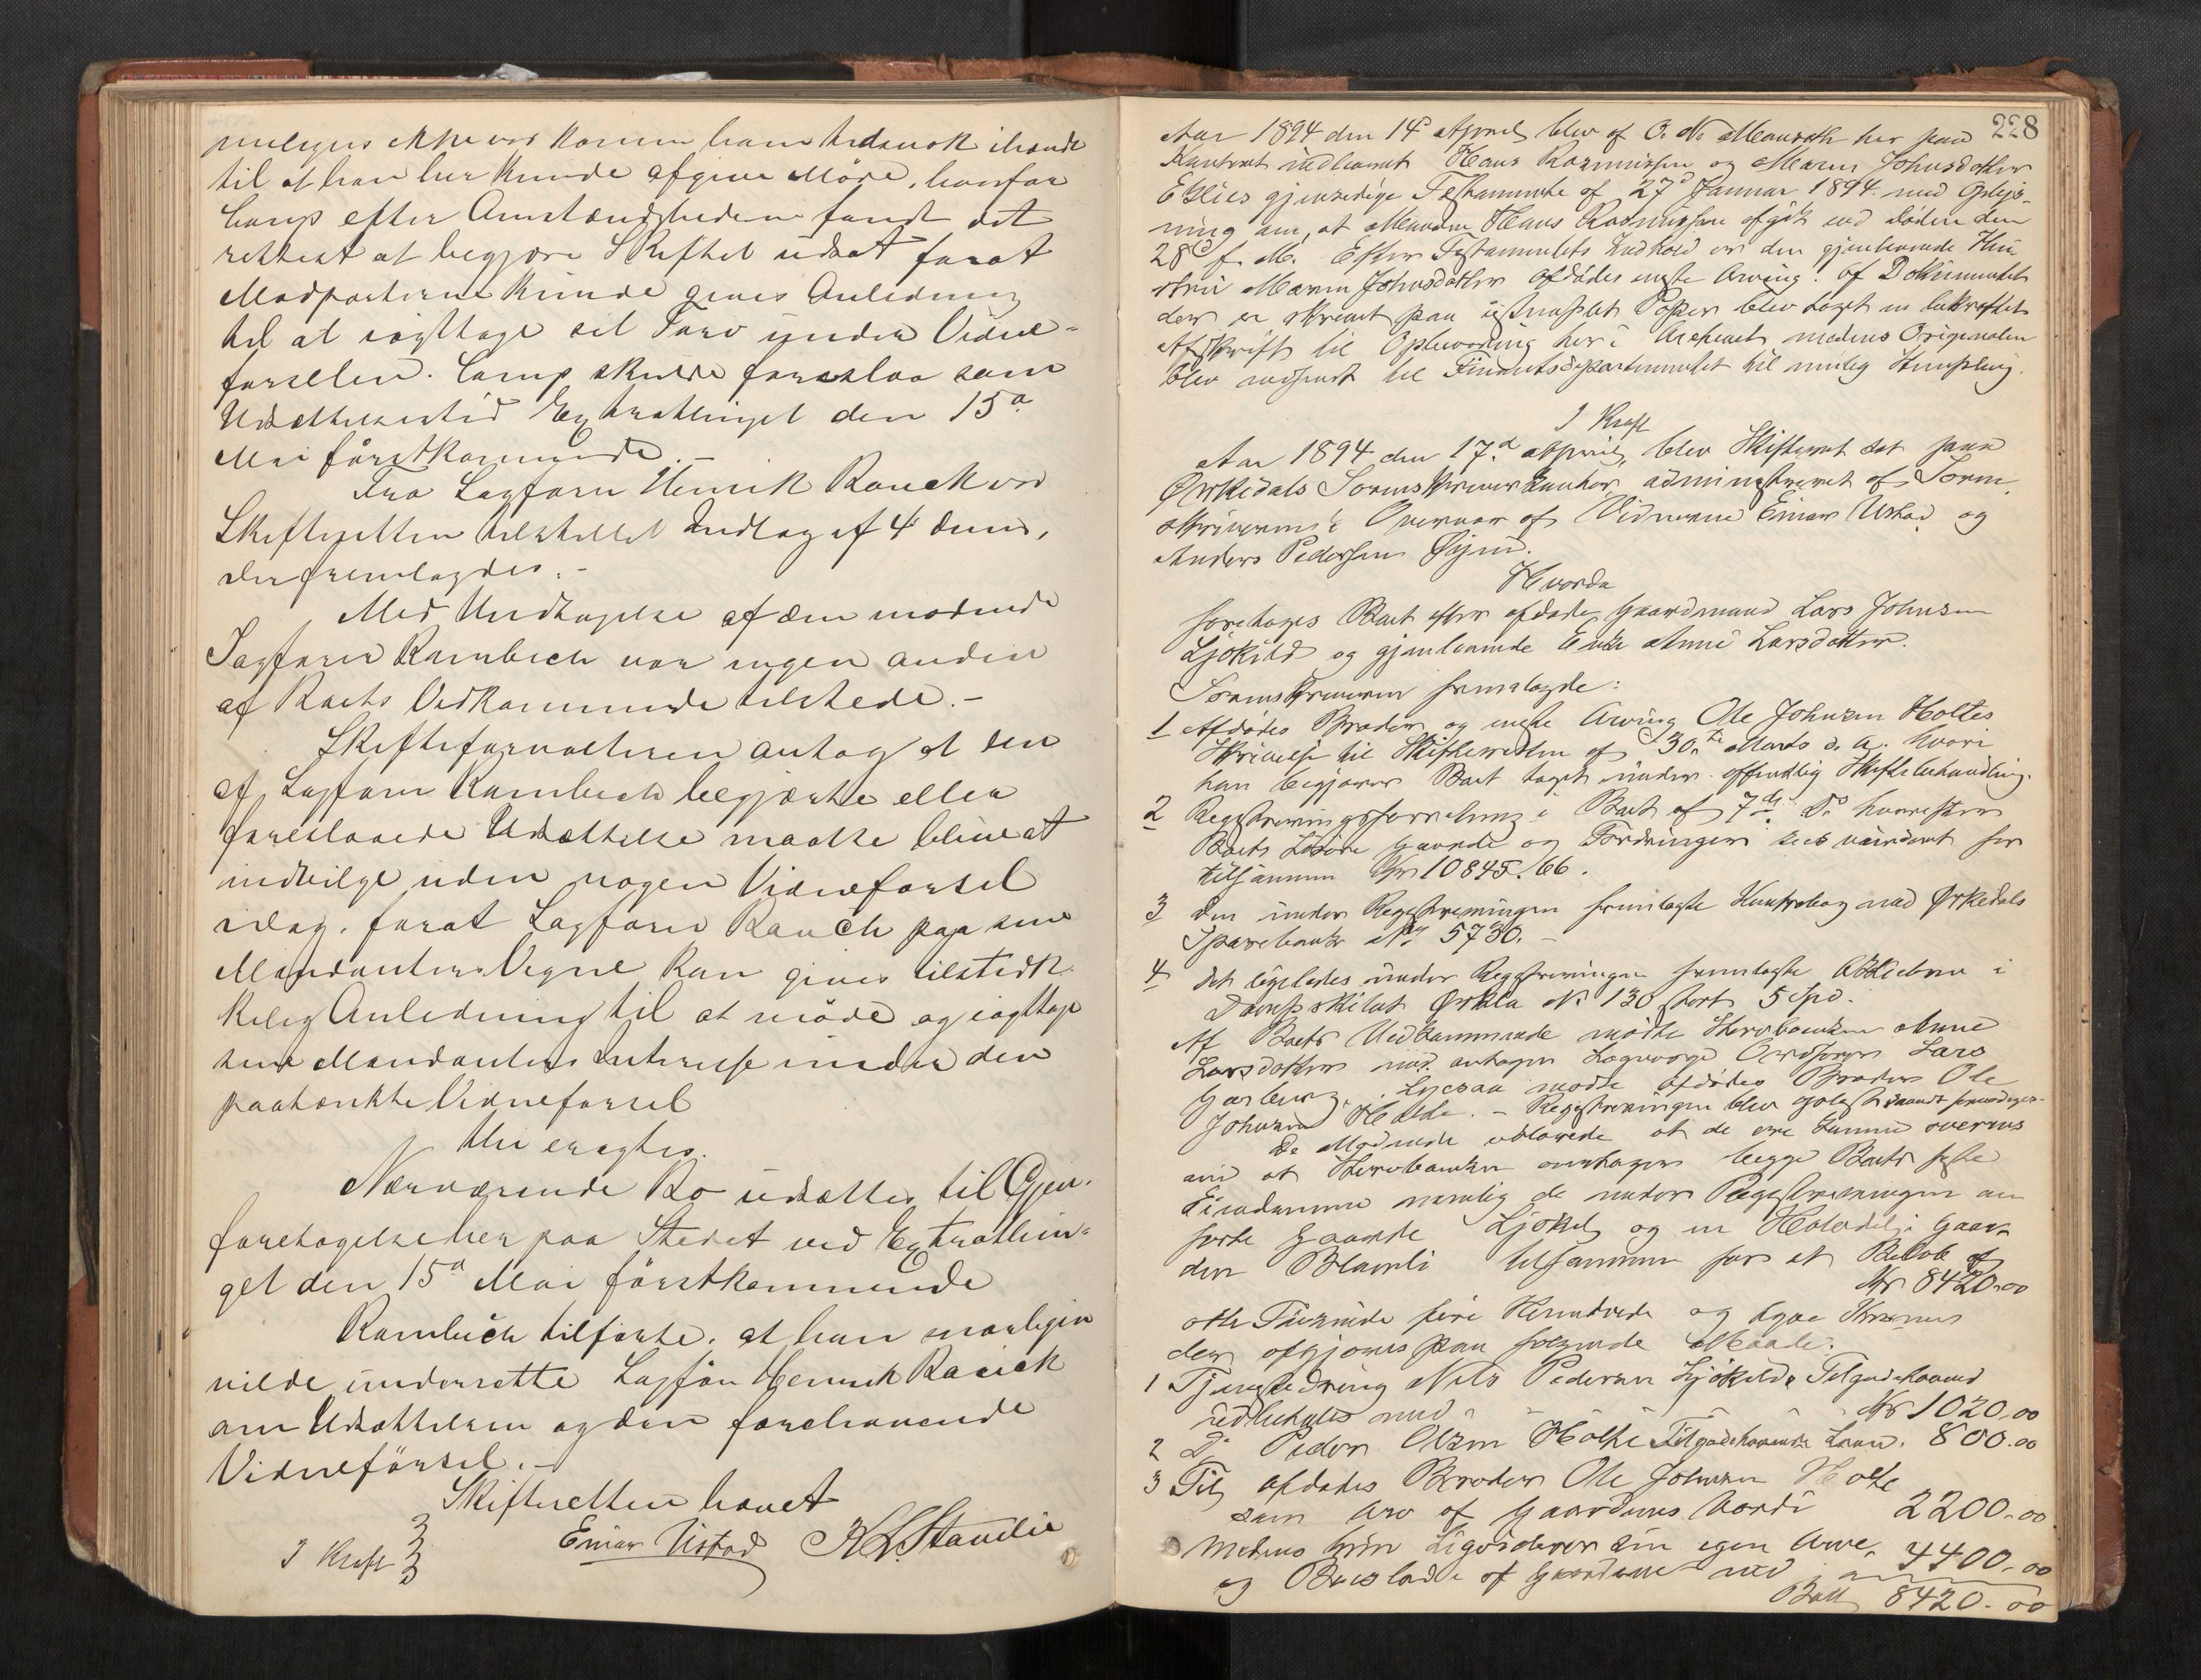 ikke var kommen ham betimelig ihænde
til at han her kunde afgive Møde, hvorfor
Comp efter Omstændighederne fandt det
rettest at begjære Skiftet udsat forat
Modparterne kunde gives Anledning
til at iagttage sit Tarv under Vidne-
førselen. Comp skulde foreslaa som
Udsættelsestid Extrathinget den 15de
Mai førstkommende.-
Fra Sagfører Henrik Rauck var
Skifteretten tilstillet Indlæg af 4 dennes,
der fremlagdes.-
Med Undtagelse af den mødende
Sagfører Rambech var ingen anden
af Boets Vedkommende tilstede.-
Skifteforvalteren antog at den
af Sagfører Rambech begjærte eller
foreslaaede Udsættelse maatte blive at
indvilge uden nogen Vidneførsel
idag, forat Sagfører Rauch paa sine
Mandanters Vegne kan gives tilstræk-
kelig Anledning til at møde og iagttage
sine Mandanters Interesse under den
paatænkte Vidneførsel
thi eragtes.
Nærværende Bo udsættes til Gjen-
foretagelse her paa Stedet ved Extrathin-
get den 15de Mai førstkommende
Rambech tilførte, at han
vilde underrette Sagfør Henrik Rauck
om Udsættelsen og den forehavende
Vidneførsel.-
Skifteretten hævet
I Kraft Einar Ustad
228
Aar 1894 den 14de April blev af O. N. her paa
Kontoret indleveret Hans Rasmussen og Maren Johnsdatter
gjensidige Testamente af 27de Januar 1844 med Oplys-
ning om, at Manden Hans Rasmussen afgik ved Døden den
28de f. M. Efter Testamentets Indhold er den gjenlevende Hu-
stru Maren Johnsdatter afdødes eneste Arving. Af Dokumentet
der er skrevet paa ustemplet Papir blev taget en bekræftet
Afskrift til Opbevaring her i Archivet medens Originalen
blev indsendt til Finantsdepartementet til Stempling.
I Kraft
Aar 1894 den 17de April, blev Skifteret sat paa
Ørkedals Sorenskriverkontor, administreret af Soren-
skriveren i Overvær af Vidnerne Einar Ustad og
Anders Pedersen
Hvorda
foretages Boet efter afdøde Gaardmand Lars Johnsen
Ljøkild og gjenlevende Enke Anne Larsdatter.
Sorenskriveren fremlagde:
1 Afdødes Broder og eneste Arving Ole Johnsen Holtes
Skrivelse til Skifteretten af 30te Marts d. A. hvori
han begjærer Boet taget under offentlig Skiftebehandling.
2 Registreringsforretning i Boet af 7de ds. hvorefter
Boets Løsøre Gaarde og Fordringer sees vurderet for
tilsammen Kr 10845.66.
3 Den under Registreringen fremlagte Kontrabog med Ørkedals
Sparebank No 5730.-
4 det ligeledes under Registreringen fremlagte Aktiebrev i
Dampskibet Ørkla No 130 stort 5 Spd.
Af Boets Vedkommende mødte Stervboenken Anne
Larsdatter med antagen Laugværge Ordfører Lars
Garberg. Ligesaa mødte afdødes Broder Ole
Johnsen Holte.- Registreringen blev oplæst
De Mødende erklærede at de ere komne overens
om at Sterbboenken overtager begge Boets faste
Eiendomme nemlig de under Registreringen an
førte Gaarde Ljøkild og en Gaar-
den tilsammen for et Beløb af
Kr 8420.00
otte Tusinde fire Hundrede og tyve Kroner
der opgjøres paa følgende Maade:
1 Tjenestedreng Nils Pedersen Ljøkilds Tilgodehavende
udbetales med Kr 1020.00
2 Do Peder Olsen Holte Tilgodehavende Løn. 800.00
3 Til afdødes Broder Ole Johnsen Holte
som Arv af Gaardenes Værdi 2200.00
Medens hun Liqviderer sin egen Arv
og af Gaardene med 4400.00
8420.00